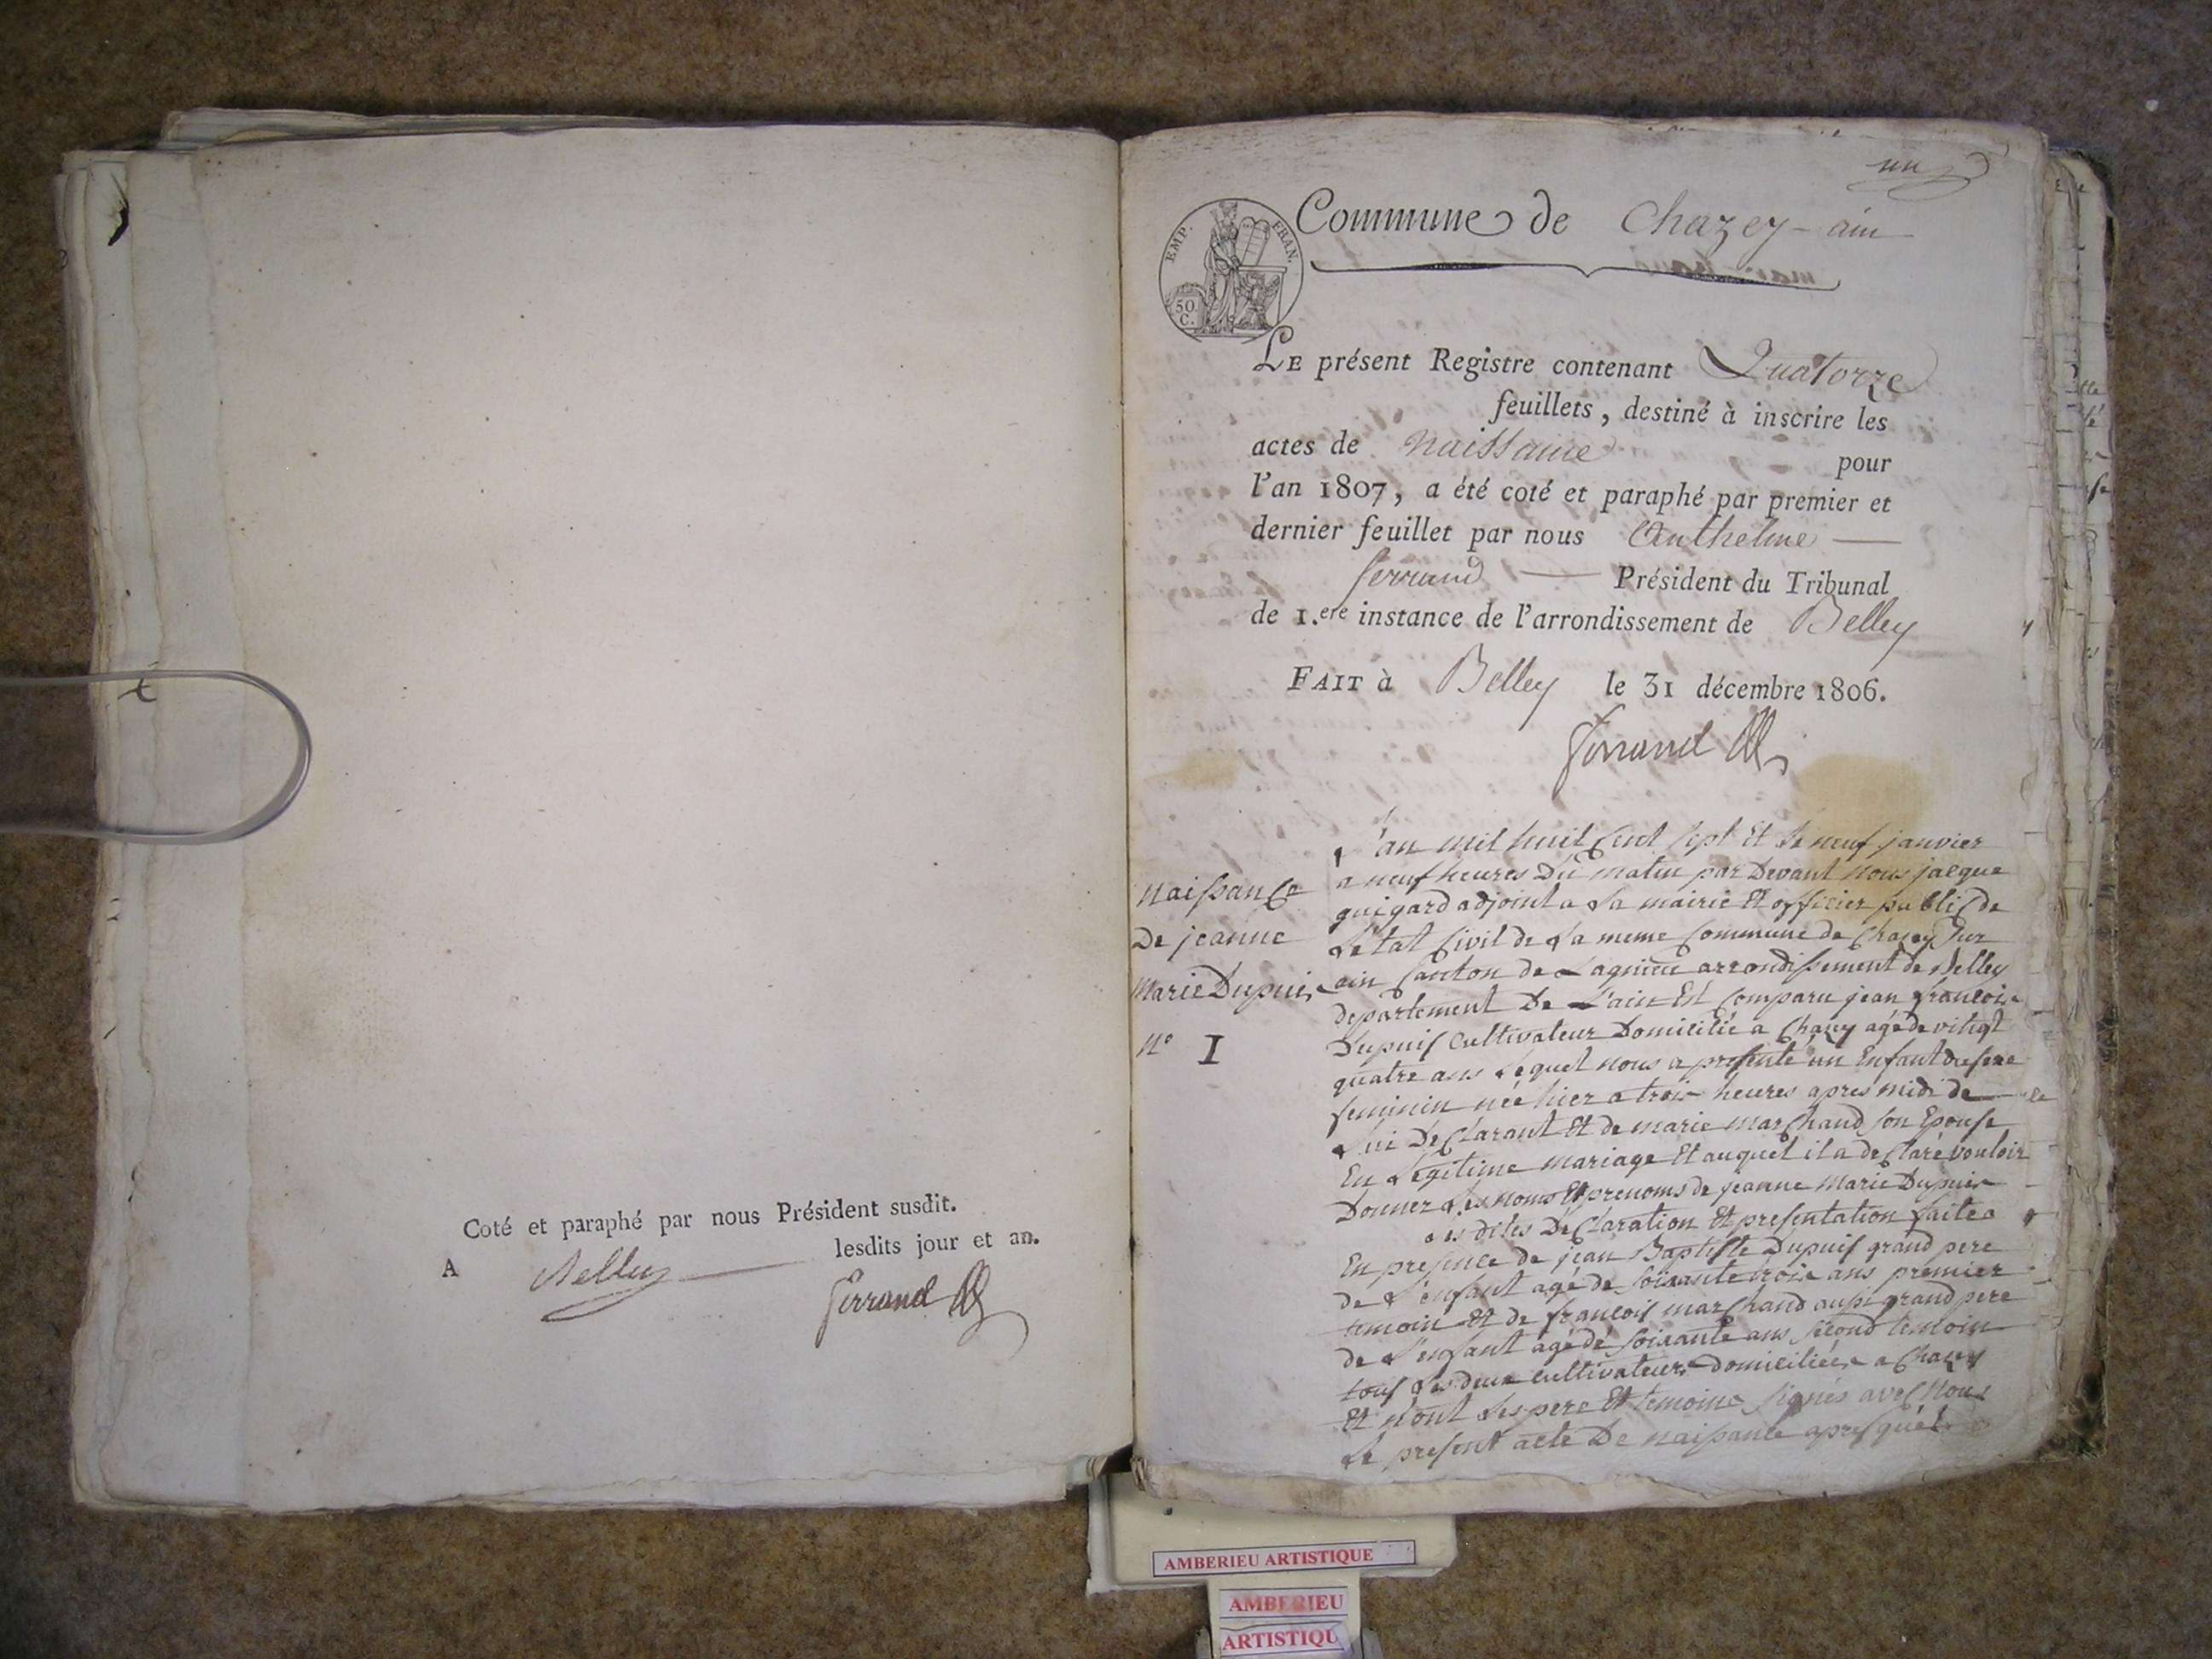 Coté et paraphé par nous Président susdit.
A Belley lesdits jour et an.
Ferrand
un
EMP. FRAN.
50 C.
Commune de Chazey - ain
LE présent Registre contenant Quatorze
feuillets, destiné à inscrire les
actes de Naissance pour
l'an 1807, a été coté et paraphé par premier et
dernier feuillet par nous Anthelme
ferrand Président du Tribunal
de 1.ere instance de l'arrondissement de Belley
FAIT à Belley le 31 décembre 1806.
Ferrand
Naissance
De jeanne
Marie Dupuis
N° I
L'an mil huit Cent sept Et le neuf janvier
a neuf heures Du matin par Devant Nous jacque
guigard adjoint a La mairie Et officier public de
Létat Civil de La meme Commune de Chazey Sur
ain Canton de Lagnieu arrondissement de Belley
departement De L'ain Est Comparu jean francois
Dupuis Cultivateur Domicilié a Chazey agé de vingt
quatre ans Lequel nous a presenté un Enfant du sexe
feminin née hier a trois heures apres midi de
Lui DeClarant Et de marie marChand son Epouse
En Legitime mariage Et auquel il a deClaré vouloir
Donner Les Noms Et prenoms de jeanne Marie Dupuis
Les dites DéClaration Et presentation faites
En presence de jean Baptiste Dupuis grand pere
de L'enfant agé de soixante trois ans premier
temoin Et de francois marChand aussi grand pere
de L'enfant agé de soixante ans second temoin
tous Les deux cultivateurs domiciliées a Chazey
Et n'ont Les pere Et temoins signés avec Nous
Le present acte De naissance apres qu'il
AMBERIEU ARTISTIQUE
AMBERIEU
ARTISTIQU